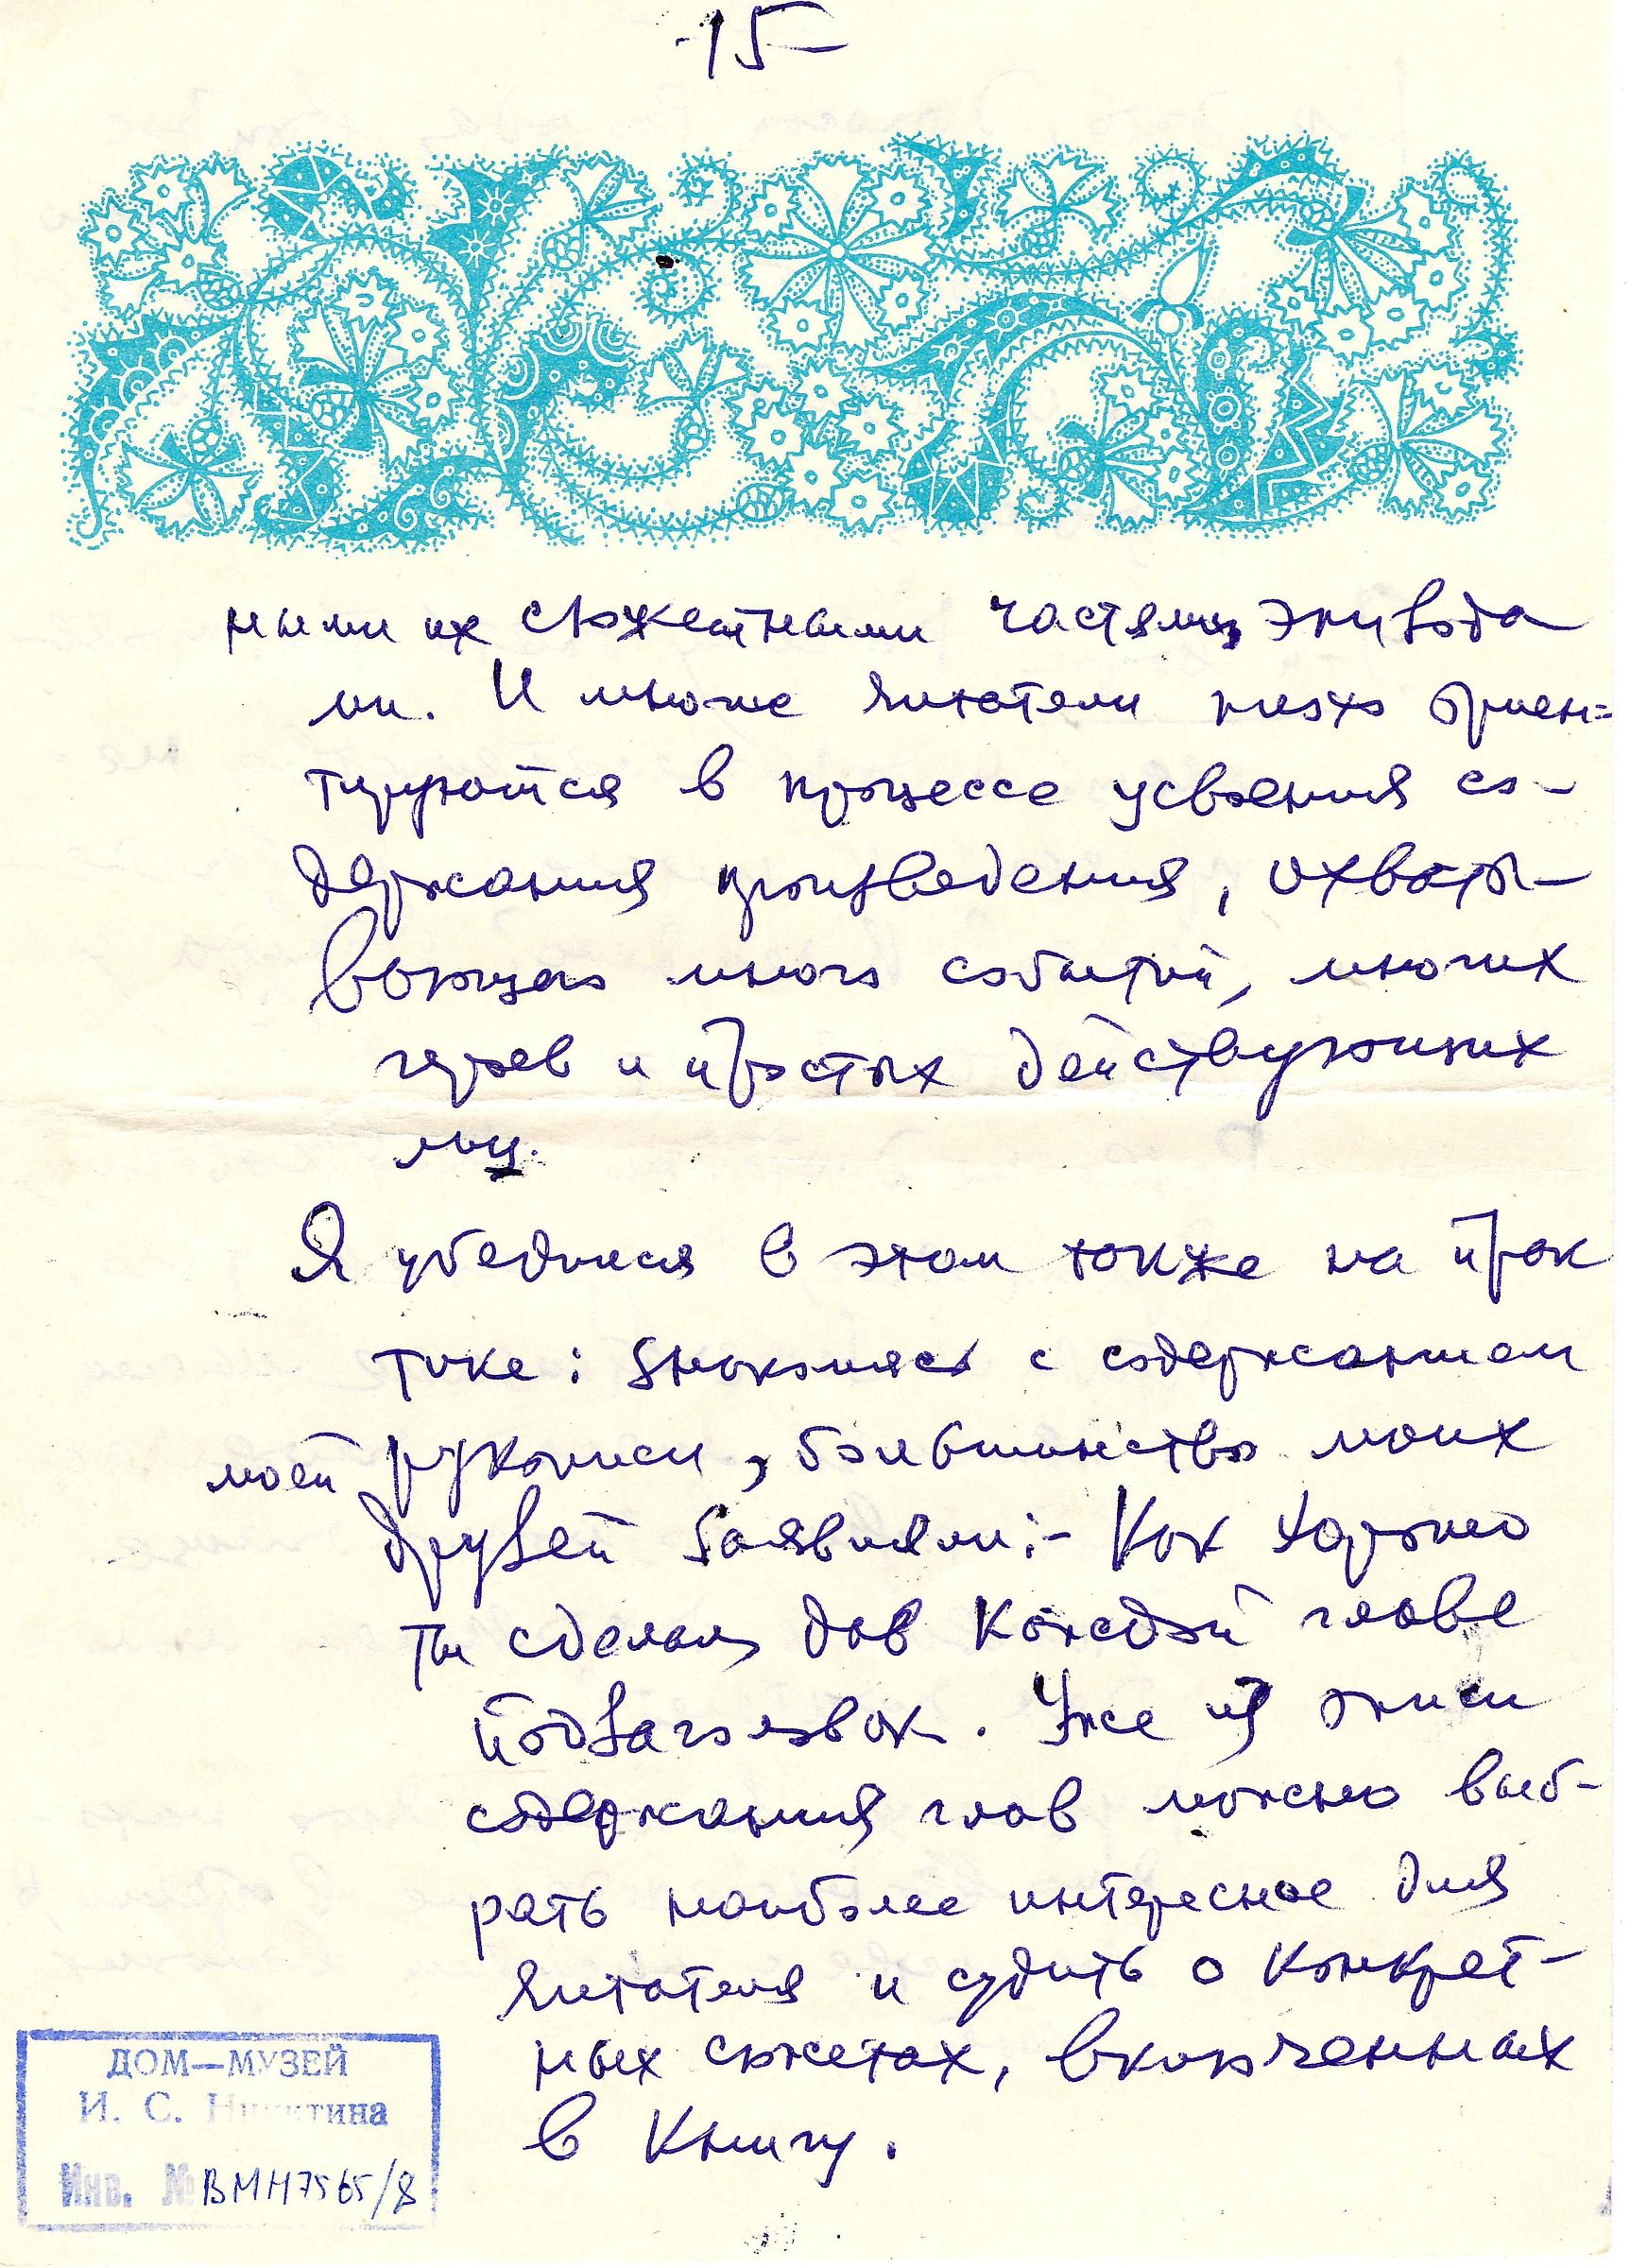 -15-
ными их сюжетными частями, эпизода
ми. И многие читатели плохо ориен=
тируются в процессе усвоения со-
держания произведения, охваты-
вающего много событий, многих
героев и простых действующих
лиц.
Я убедился в этом также на прак
тике: знакомясь с содержанием
моей рукописи, большинство моих
друзей заявляли:- Как хорошо
ты сделал, дав каждой главе
подзаголовок. Уже из описи
содержания глав можно выб-
рать наиболее интересное для
читателя и судить о конкрет-
ных сюжетах, включенных
в книгу.
ДОМ—МУЗЕЙ
И. С. Никитина
Инв. № ВМН7565/8